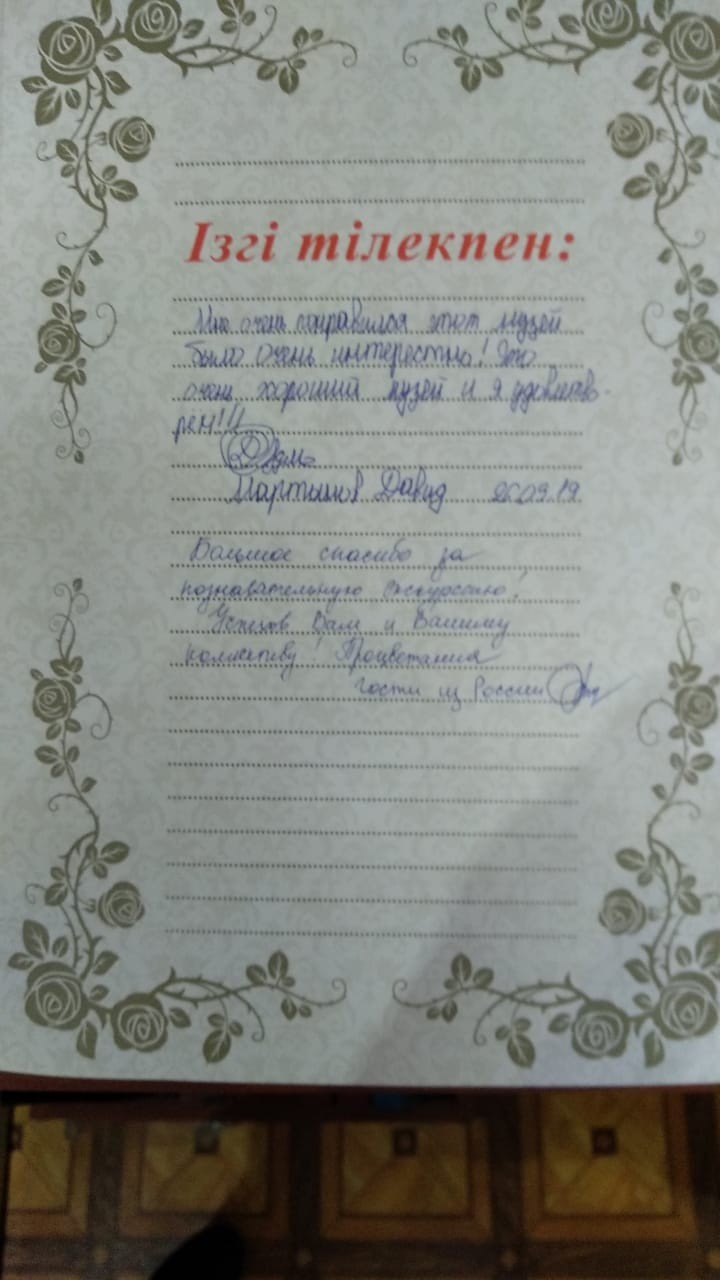 Ізгі тілекпен:
Мне очень понравился этот музей
было очень интерестно! Это
очень хороший музей и я удовлетво-
рён!!!
Мартынов Давид 26.09.19
Большое спасибо за
познавательную экскурсию!
Успехов Вам и Вашему
коллективу! Процветания
гости из России